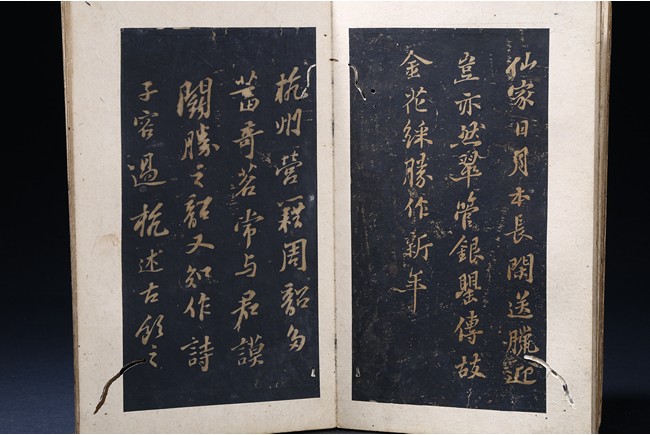 仙家日月本長閑送臘迎
豈亦然翠管銀罌傳故
金花綵勝作新年
杭州營籍周韶多
蓄奇茗常与君謨
闘勝之韶又知作詩
子容過杭述古飲之